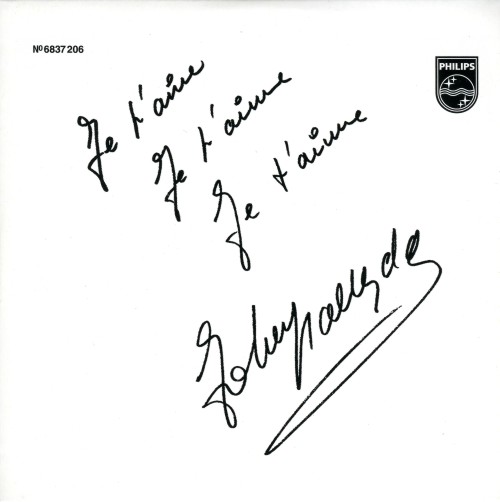 Nº6837206
PHILIPS
Je t'aime
Je t'aime
Je t'aime
Johnny Hallyday